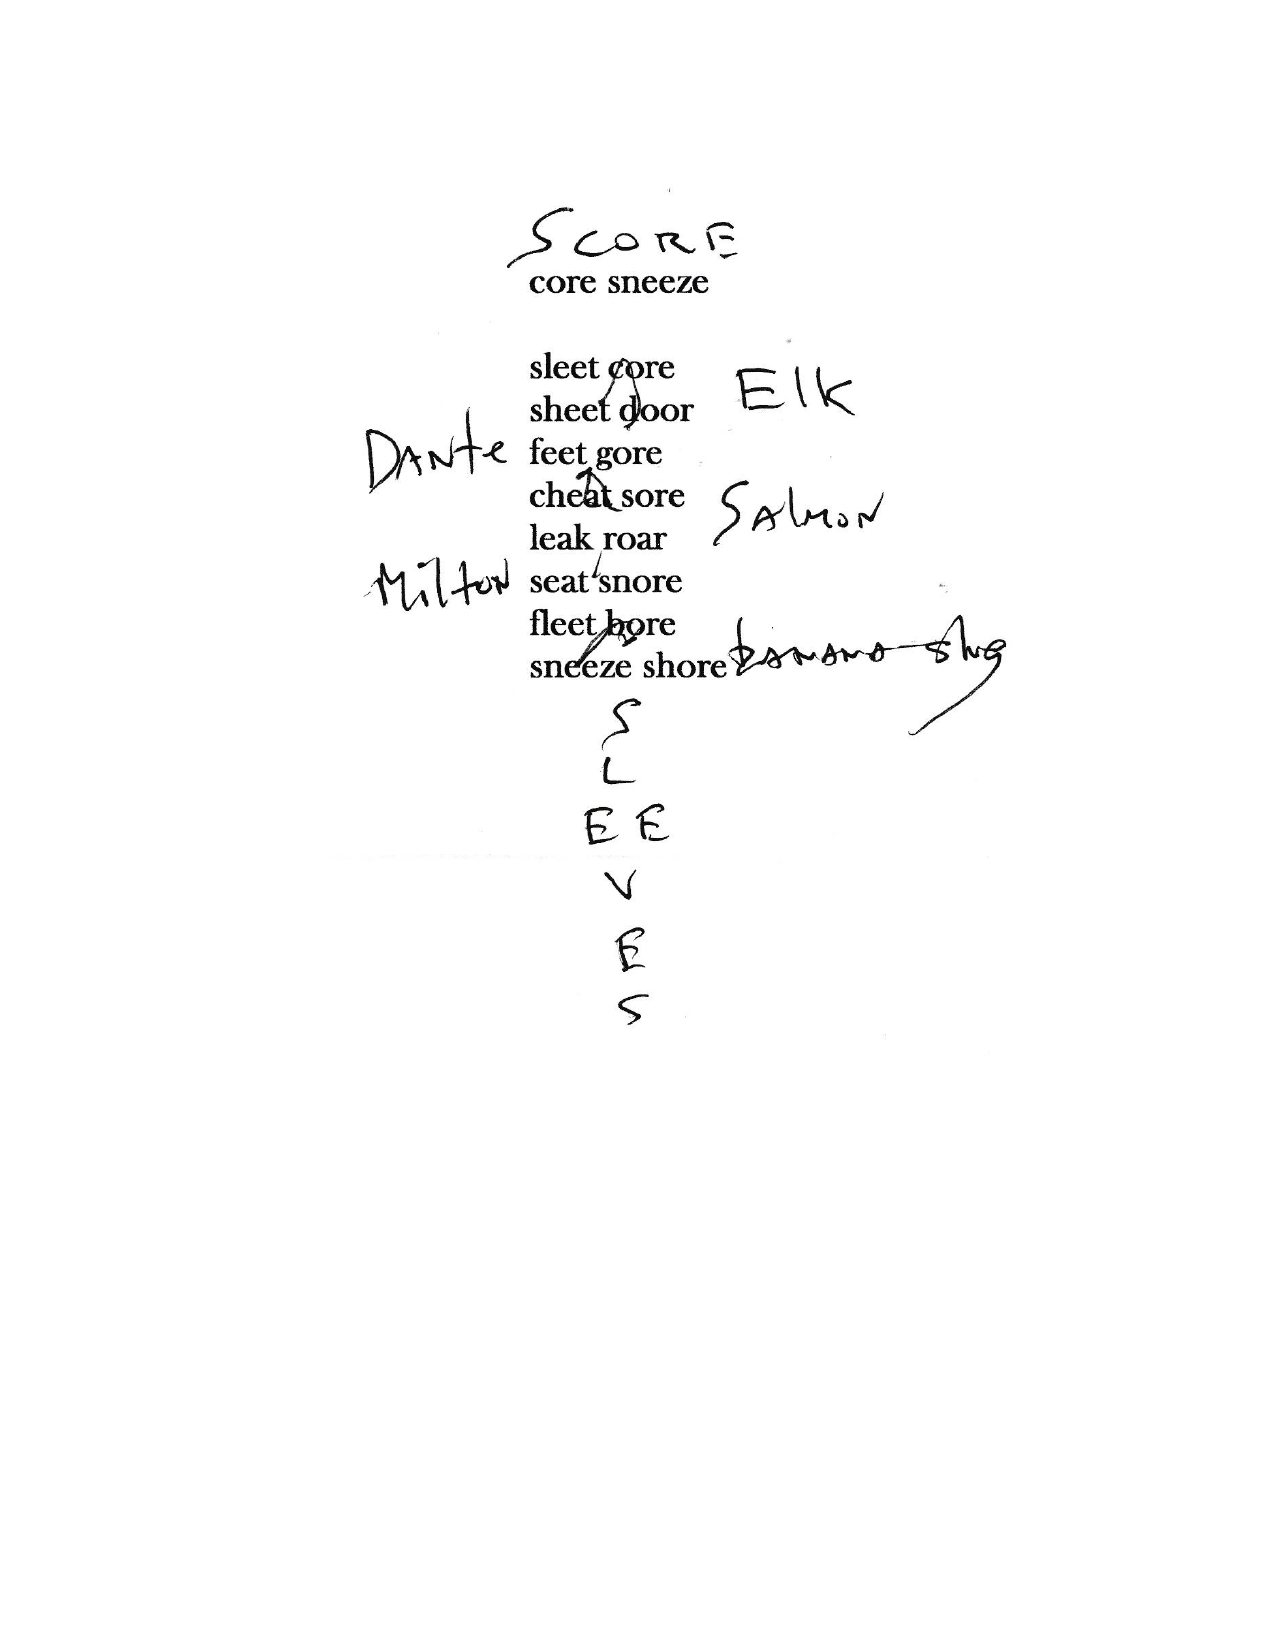 SCORE
core sneeze
sleet core
sheet door
Elk
Dante
feet gore
cheat sore
Salmon
leak roar
Milton
seat snore
fleet bore
sneeze shore
banana slug
S
L
E E
V
E
S